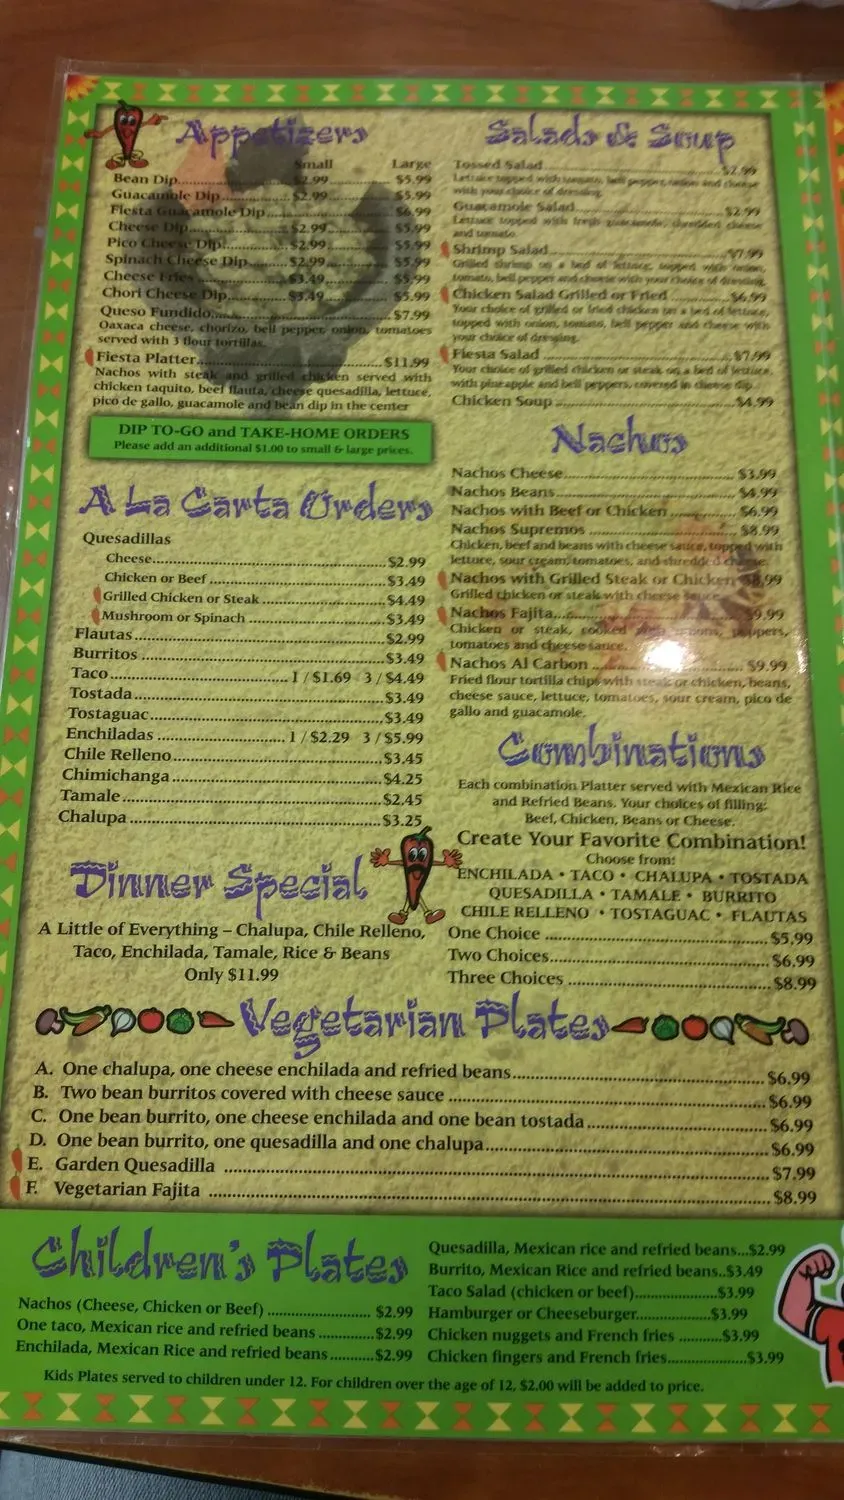 Appetizers
Small Large
Bean Dip $2.99 $5.99
Guacamole Dip $2.99 $5.99
Fiesta Guacamole Dip $6.99
Cheese Dip $2.99 $5.99
Pico Cheese Dip $2.99 $5.99
Spinach Cheese Dip $2.99 $5.99
Cheese Fries $3.49 $5.99
Chori Cheese Dip $3.49 $5.99
Queso Fundido $7.99
Oaxaca cheese, chorizo, bell pepper, onion, tomatoes
served with 3 flour tortillas
Fiesta Platter $11.99
Nachos with steak and grilled chicken served with
chicken taquito, beef flauta, cheese quesadilla, lettuce,
pico de gallo, guacamole and bean dip in the center
DIP TO-GO and TAKE-HOME ORDERS
Please add an additional $1.00 to small & large prices.
A La Carta Orders
Quesadillas
Cheese $2.99
Chicken or Beef $3.49
Grilled Chicken or Steak $4.49
Mushroom or Spinach $3.49
Flautas $2.99
Burritos $3.49
Taco 1 / $1.69 3 / $4.49
Tostada $3.49
Tostaguac $3.49
Enchiladas 1 / $2.29 3 / $5.99
Chile Relleno $3.45
Chimichanga $4.25
Tamale $2.45
Chalupa $3.25
Dinner Special
A Little of Everything – Chalupa, Chile Relleno,
Taco, Enchilada, Tamale, Rice & Beans
Only $11.99
Salads & Soup
Tossed Salad $2.99
Lettuce topped with tomato, bell pepper, onion and cheese
with your choice of dressing.
Guacamole Salad $2.99
Lettuce topped with fresh guacamole, shredded cheese
and tomato.
Shrimp Salad $7.99
Grilled shrimp on a bed of lettuce, topped with onion,
tomato, bell pepper and cheese with your choice of dressing.
Chicken Salad Grilled or Fried $6.99
Your choice of grilled or fried chicken on a bed of lettuce,
topped with onion, tomato, bell pepper and cheese with
your choice of dressing.
Fiesta Salad $7.99
Your choice of grilled chicken or steak on a bed of lettuce,
with pineapple and bell peppers, covered in cheese dip
Chicken Soup $4.99
Nachos
Nachos Cheese $3.99
Nachos Beans $4.99
Nachos with Beef or Chicken $6.99
Nachos Supremos $8.99
Chicken, beef and beans with cheese sauce, topped with
lettuce, sour cream, tomatoes, and shredded cheese.
Nachos with Grilled Steak or Chicken $8.99
Grilled chicken or steak with cheese sauce
Nachos Fajita $9.99
Chicken or steak, cooked with onions, peppers,
tomatoes and cheese sauce.
Nachos Al Carbon $9.99
Fried flour tortilla chips with steak or chicken, beans,
cheese sauce, lettuce, tomatoes, sour cream, pico de
gallo and guacamole.
Combinations
Each combination Platter served with Mexican Rice
and Refried Beans. Your choices of filling:
Beef, Chicken, Beans or Cheese.
Create Your Favorite Combination!
Choose from:
ENCHILADA • TACO • CHALUPA • TOSTADA
QUESADILLA • TAMALE • BURRITO
CHILE RELLENO • TOSTAGUAC • FLAUTAS
One Choice $5.99
Two Choices $6.99
Three Choices $8.99
Vegetarian Plates
A. One chalupa, one cheese enchilada and refried beans $6.99
B. Two bean burritos covered with cheese sauce $6.99
C. One bean burrito, one cheese enchilada and one bean tostada $6.99
D. One bean burrito, one quesadilla and one chalupa $6.99
E. Garden Quesadilla $7.99
F. Vegetarian Fajita $8.99
Children's Plates
Nachos (Cheese, Chicken or Beef) $2.99
One taco, Mexican rice and refried beans $2.99
Enchilada, Mexican Rice and refried beans $2.99
Quesadilla, Mexican rice and refried beans $2.99
Burrito, Mexican Rice and refried beans $3.49
Taco Salad (chicken or beef) $3.99
Hamburger or Cheeseburger $3.99
Chicken nuggets and French fries $3.99
Chicken fingers and French fries $3.99
Kids Plates served to children under 12. For children over the age of 12, $2.00 will be added to price.